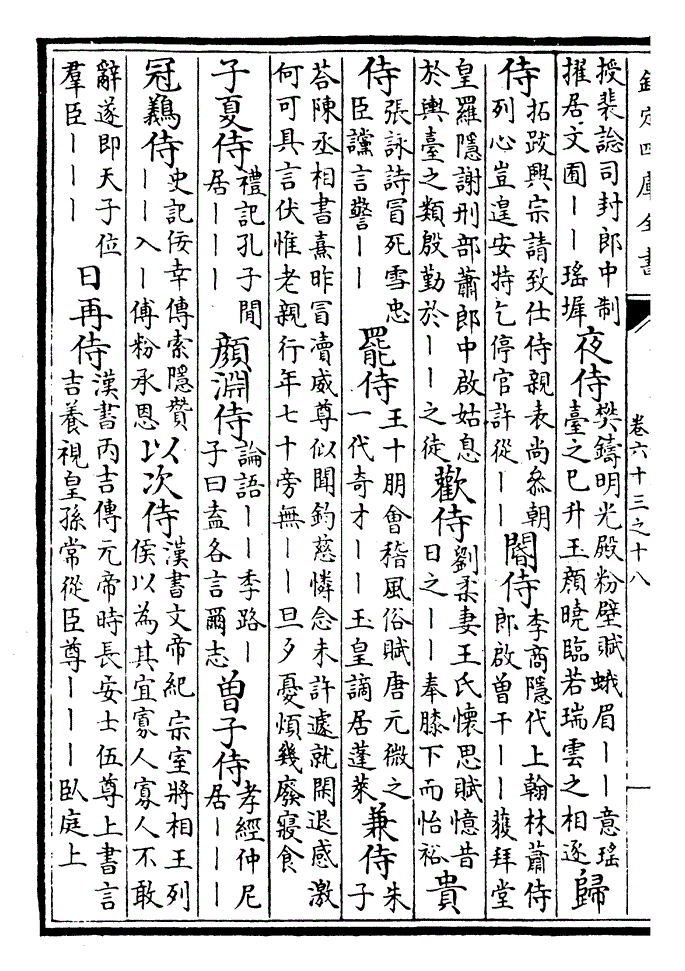 欽定四庫全書
卷六十三之十八
授裴諗司封郎中制
擢居文囿——瑤墀
夜侍
樊鑄明光殿粉壁賦蛾眉——意瑤
臺之已升玉顔曉臨若瑞雲之相逐
歸
侍
拓跋興宗請致仕侍親表尚叅朝
列心豈遑安特乞停官許從——
閽侍
李商隱代上翰林蕭侍
郎啟曾干——獲拜堂
皇羅隱謝刑部蕭郎中啟姑息
於輿臺之類殷勤於——之徒
歡侍
劉柔妻王氏懷思賦憶昔
日之——奉膝下而怡裕
貴
侍
張詠詩冒死雪忠
臣讜言警——
罷侍
王十朋會稽風俗賦唐元微之
一代奇才——玉皇謫居蓬萊
兼侍
朱
子
荅陳丞相書熹昨冒瀆威尊似聞鈞慈憐念未許遽就閑退感激
何可具言伏惟老親行年七十旁無——旦夕憂煩幾廢寢食
子夏侍
禮記孔子閒
居———
顔淵侍
論語——季路—
子曰盍各言爾志
曽子侍
孝經仲尼
居———
冠鵕侍
史記佞幸傳索隱賛
——入—傅粉承恩
以次侍
漢書文帝紀宗室將相王列
侯以為其宜寡人寡人不敢
辭遂即天子位
羣臣———
日再侍
漢書丙吉傳元帝時長安士伍尊上書言
吉養視皇孫常從臣尊———臥庭上